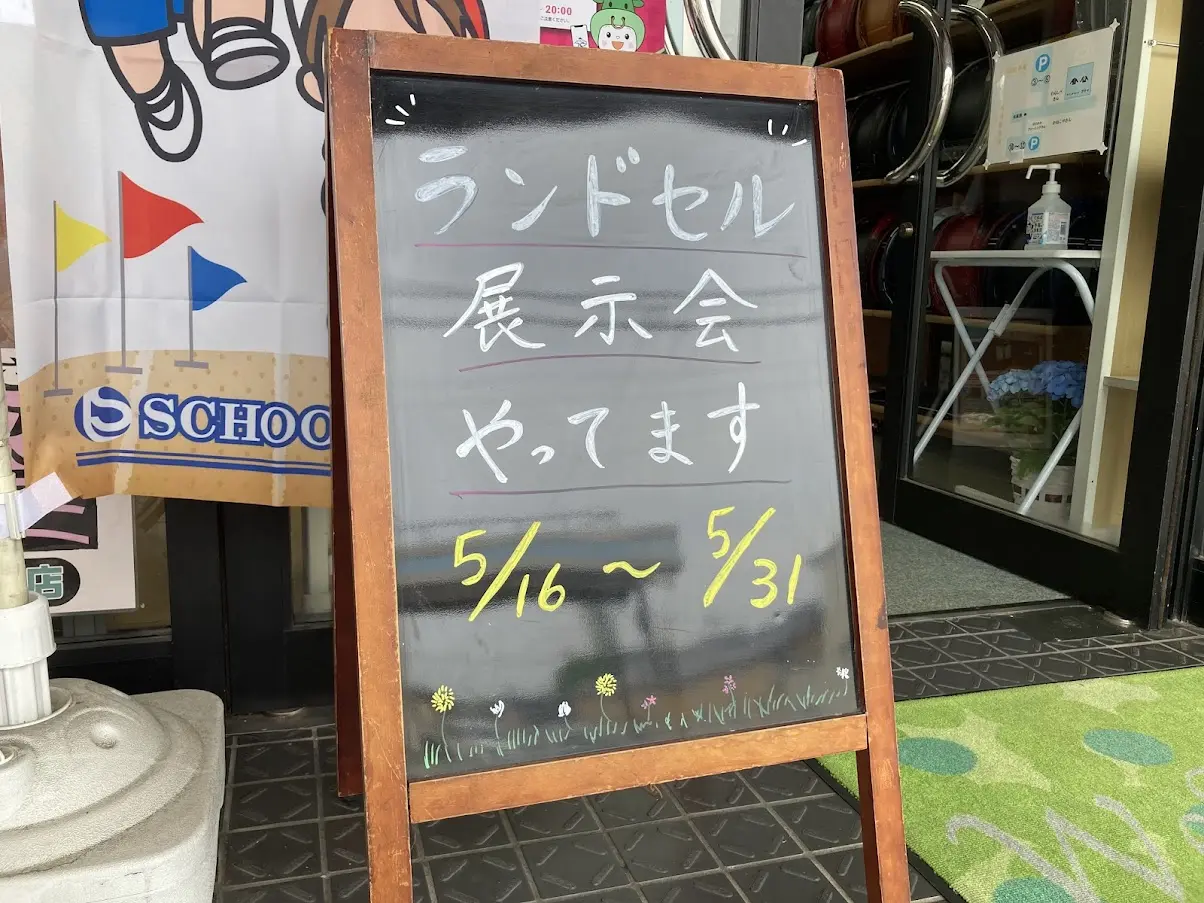 20:00
ランドセル
展示会
やってます
5/16 ～ 5/31
S SCHOO
店
P
P